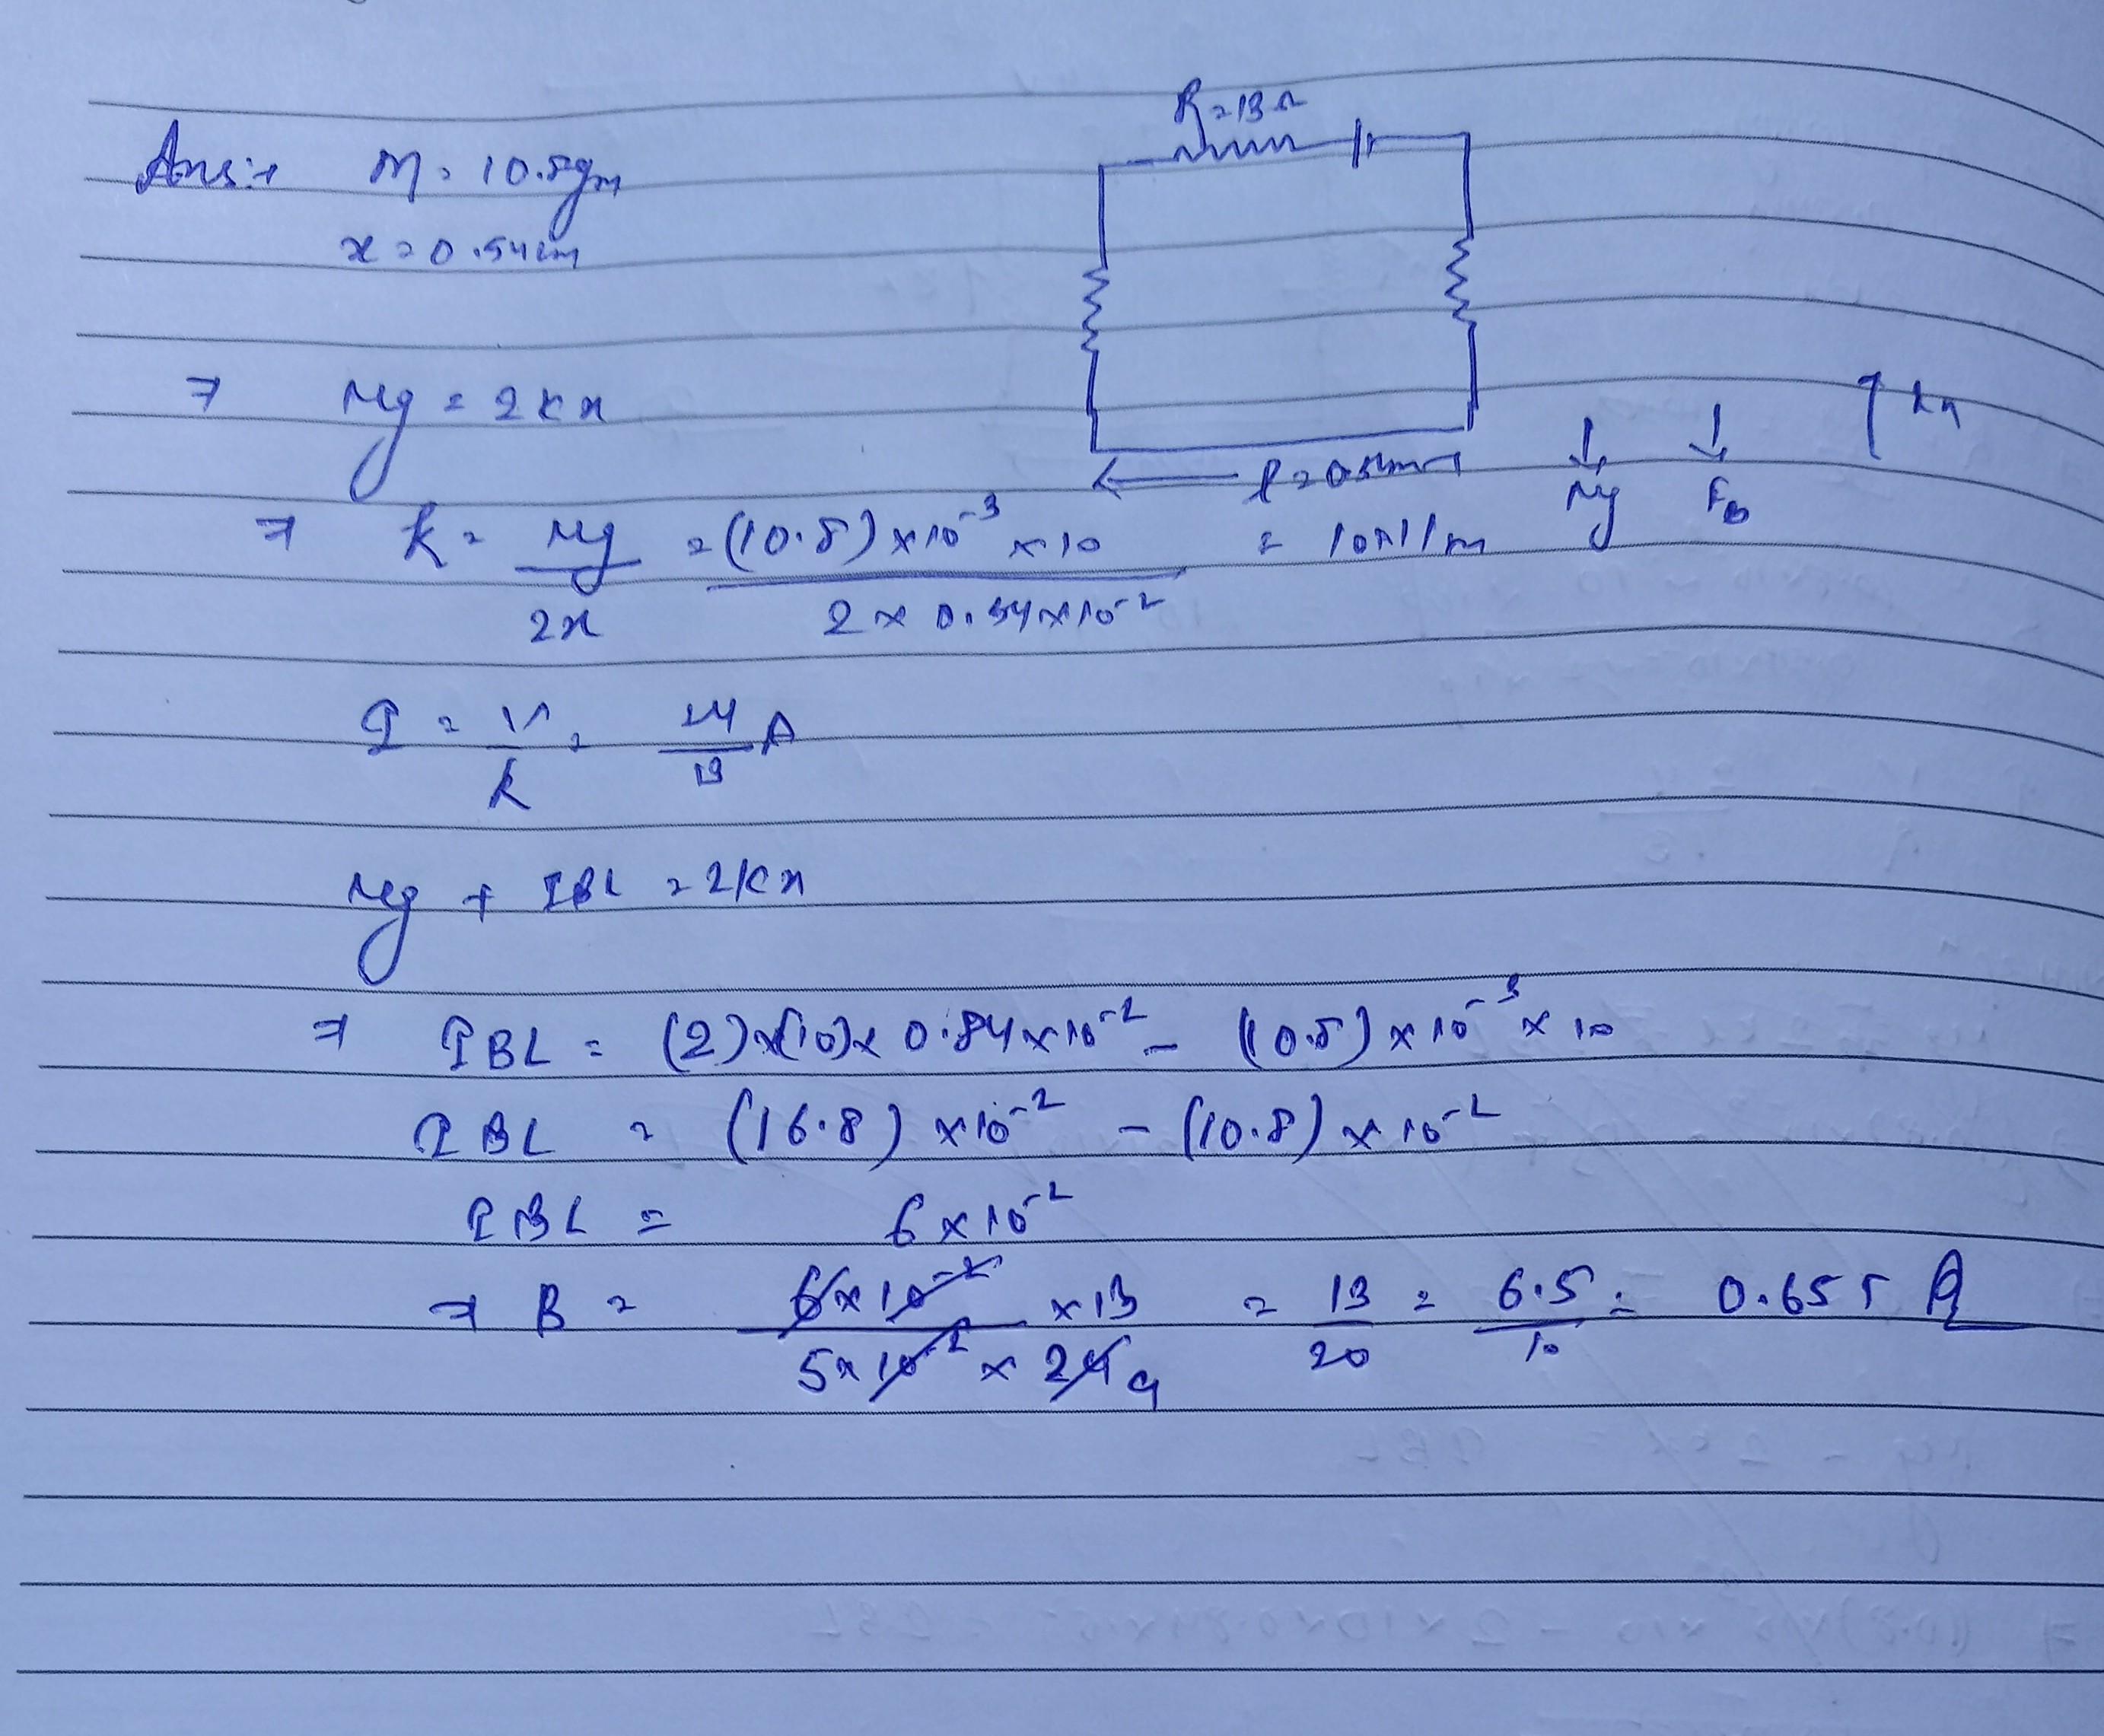 R = 13 Ω
Ans:→ M = 10.8gm
x = 0.54cm
⇒ Mg = 2Kx
kx
l = 0.5m
Mg FB
⇒ k = Mg/2x = (10.8)×10^-3 × 10 / 2 × 0.54×10^-2 = 10N/m
I = V/R = 24/13 A
Mg + IBL = 2Kx
⇒ IBL = (2)×(10)× 0.84×10^-2 - (10.8)×10^-3 × 10
IBL = (16.8) ×10^-2 - (10.8)×10^-2
IBL = 6×10^-2
⇒ B = 6×10^-2 × 13 / 5×10^-2 × 24 4 = 13/20 = 6.5/10 = 0.65T